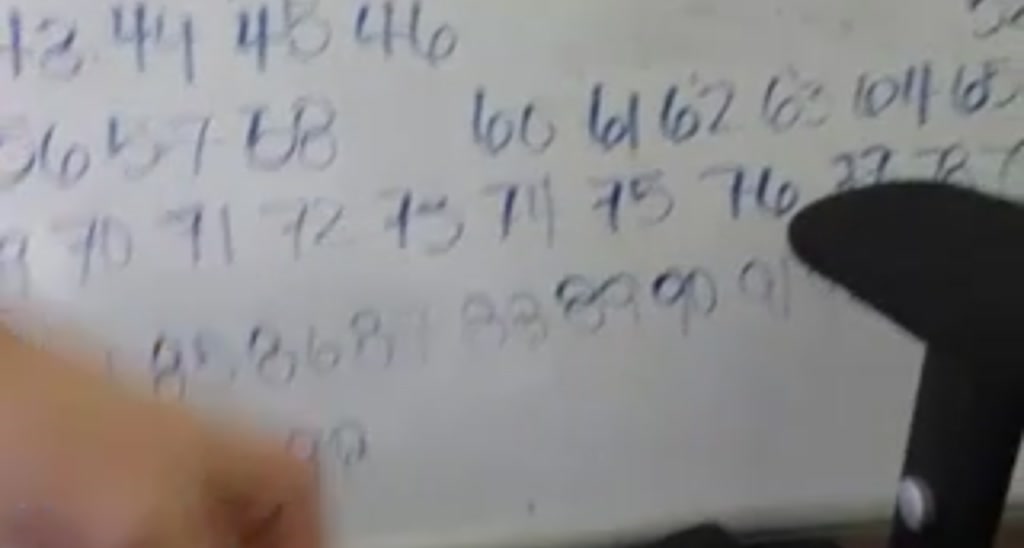 43 44 45 46
56 57 58 60 61 62 63 64 65
70 71 72 73 74 75 76 77 78
85 86 87 88 89 90 91